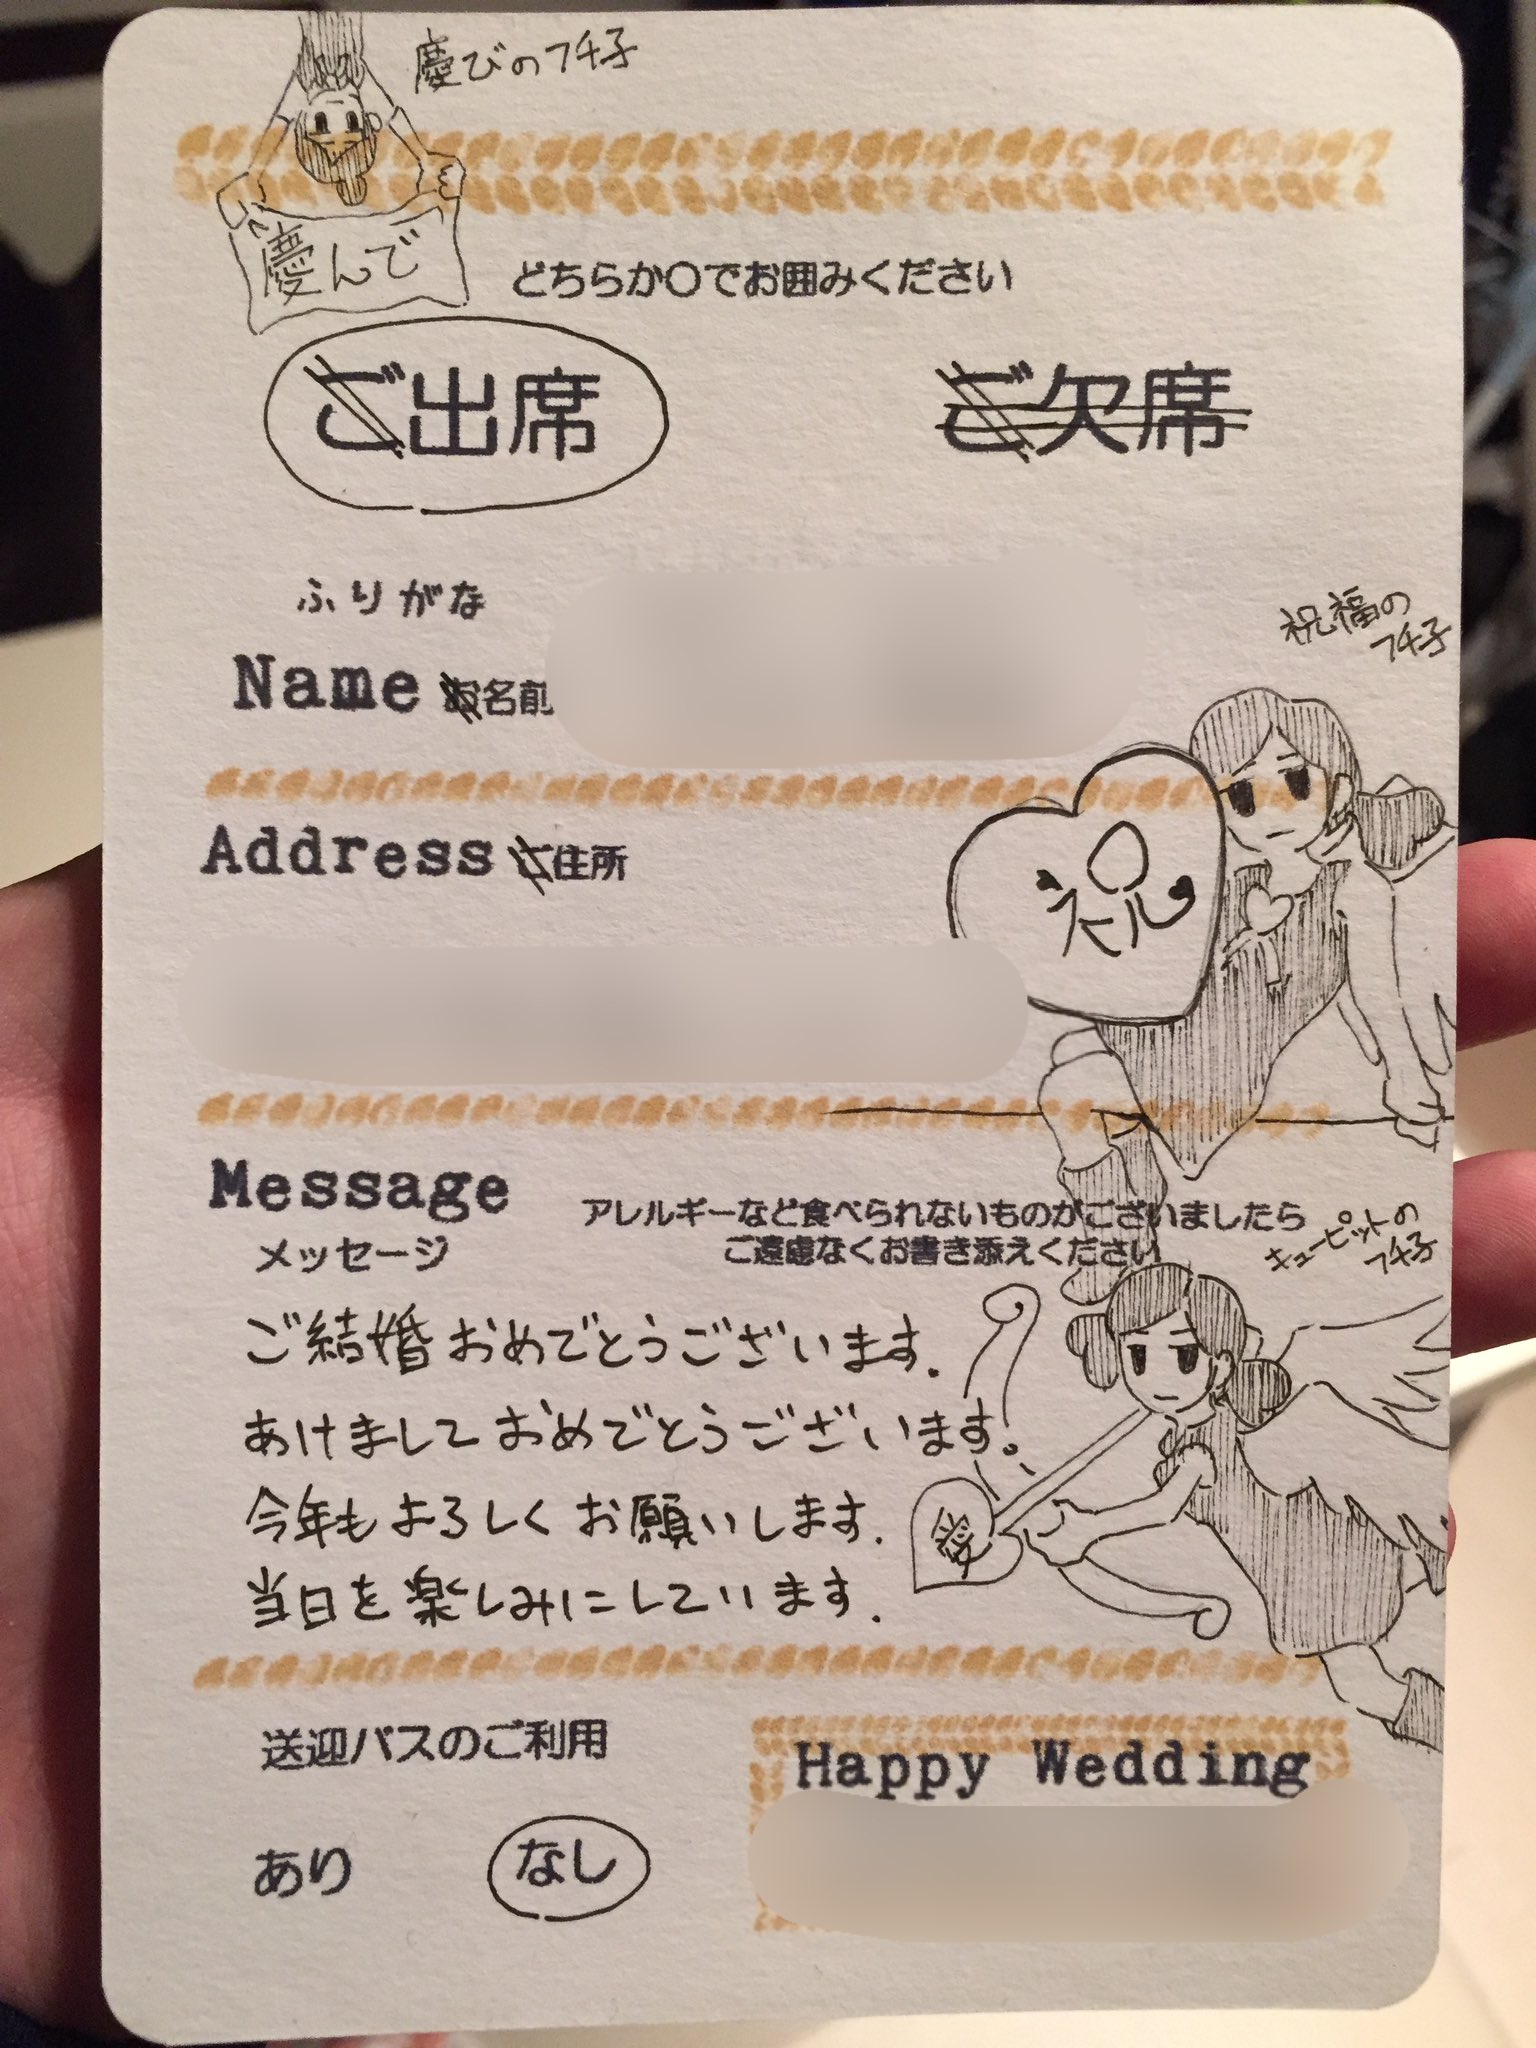 慶びのフチ子
慶んで
どちらか○でお囲みください
ご出席
ご欠席
ふりがな
Name お名前
祝福の
フチ子
Address ご住所
Message
メッセージ
アレルギーなど食べられないものがございましたら
ご遠慮なくお書き添えください
キューピットの
フチ子
ご結婚おめでとうございます.
あけましておめでとうございます。
今年もよろしくお願いします.
愛
当日を楽しみにしています.
送迎バスのご利用
あり
なし
Happy Wedding